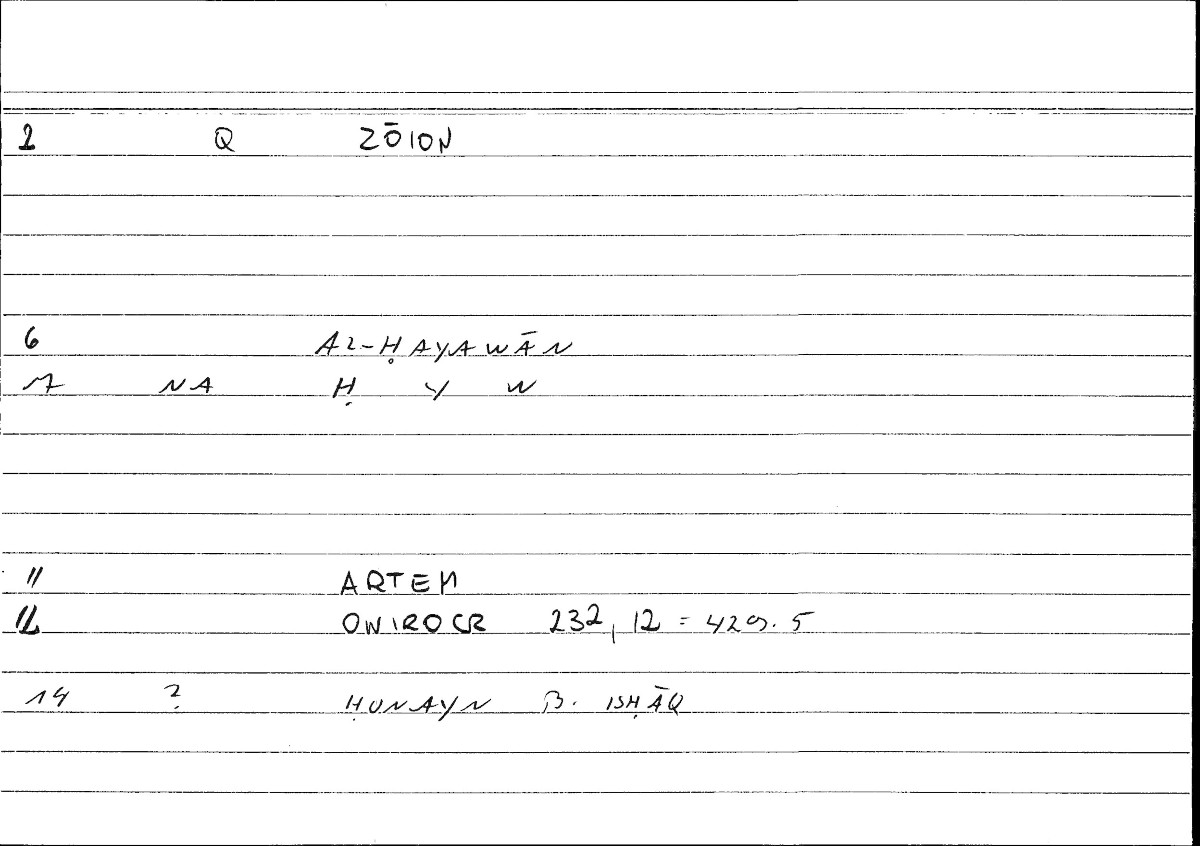 2 Q ZŌION
6 AL-ḤAYAWĀN
7 NA Ḥ Y W
11 ARTEM
12 ONIROCR 232,12 = 429.5
14 ? ḤUNAYN B. ISḤĀQ